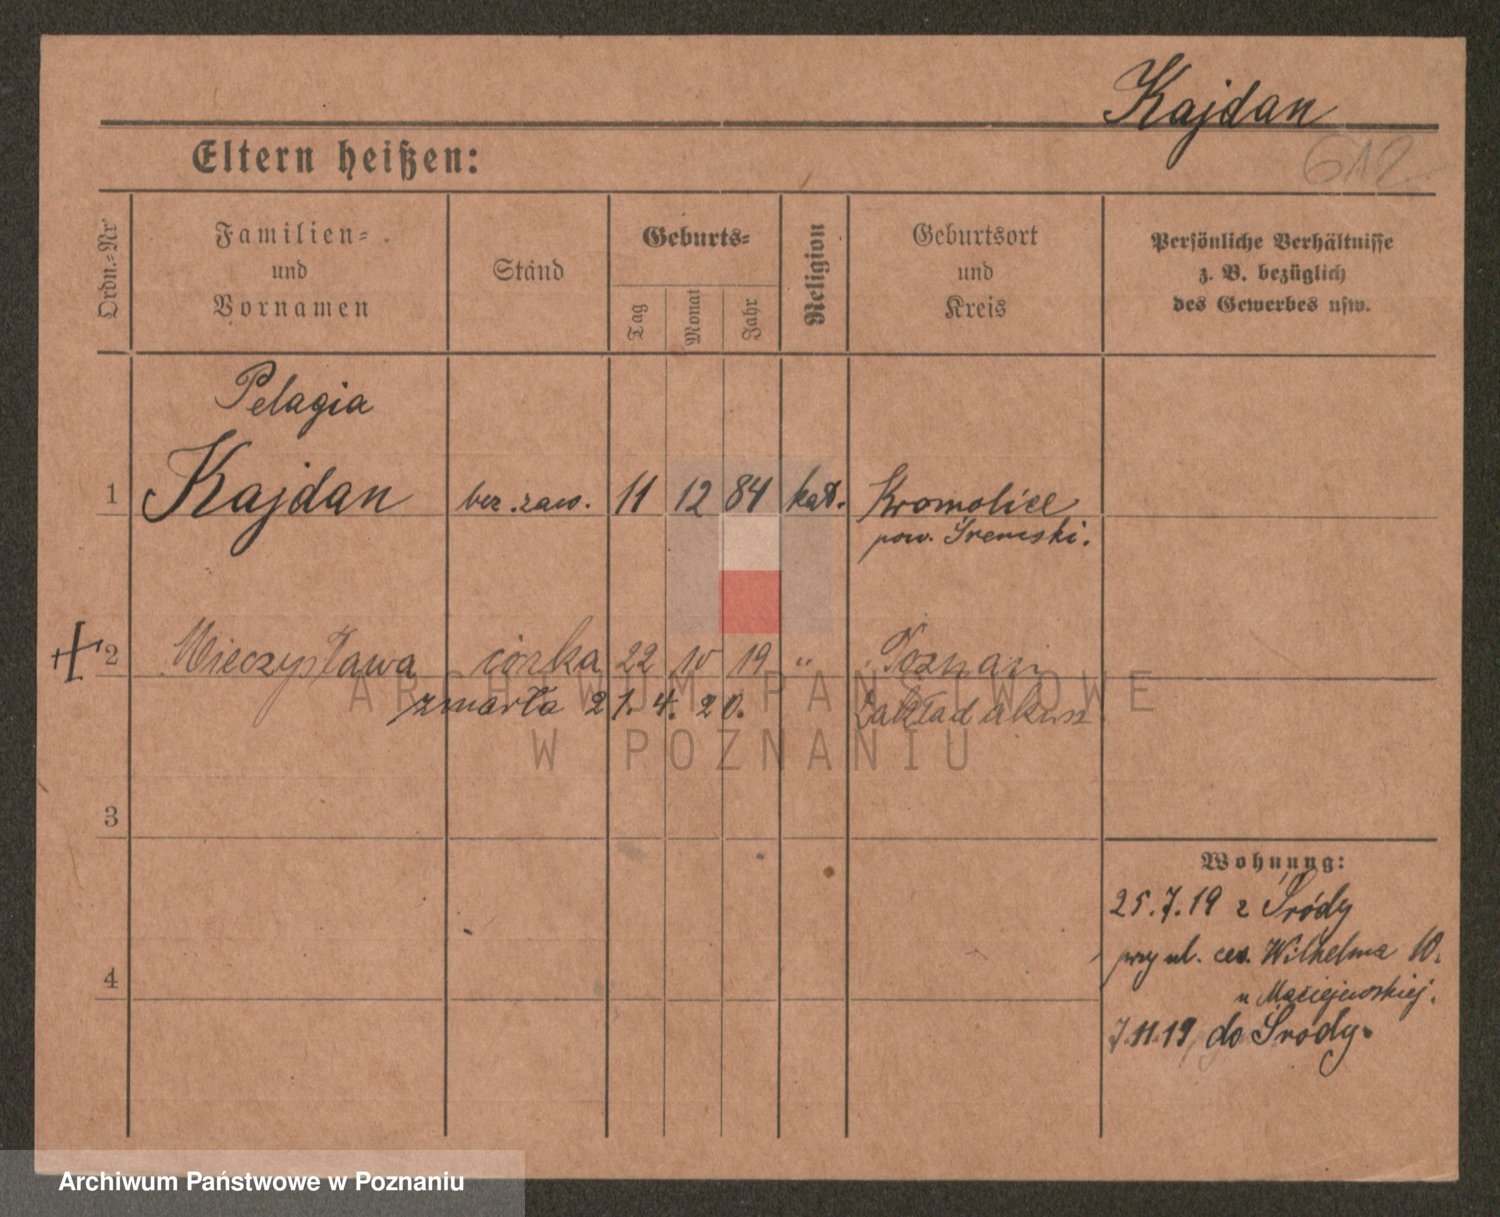 Kajdan
612
Eltern heißen:
Ordn.-Nr
Familien-
und
Vornamen
Stand
Geburts-
Tag
Monat
Jahr
Religion
Geburtsort
und
Kreis
Persönliche Verhältnisse
z. B. bezüglich
des Gewerbes usw.
Pelagia
1 Kajdan bez. zaw. 11 12 84 kat. Kromolice
pow. Śremski.
+ 2 Mieczysława córka 22 10 19 " Poznań
zmarła 21. 4. 20. Zakład akusz.
ARCHIWUM PAŃSTWOWE
W POZNANIU
3
4
Wohnung:
25.7.19 z Środy
przy ul. ces. Wilhelma 10.
u Maciejewskiej.
7.11.19, do Środy.
Archiwum Państwowe w Poznaniu